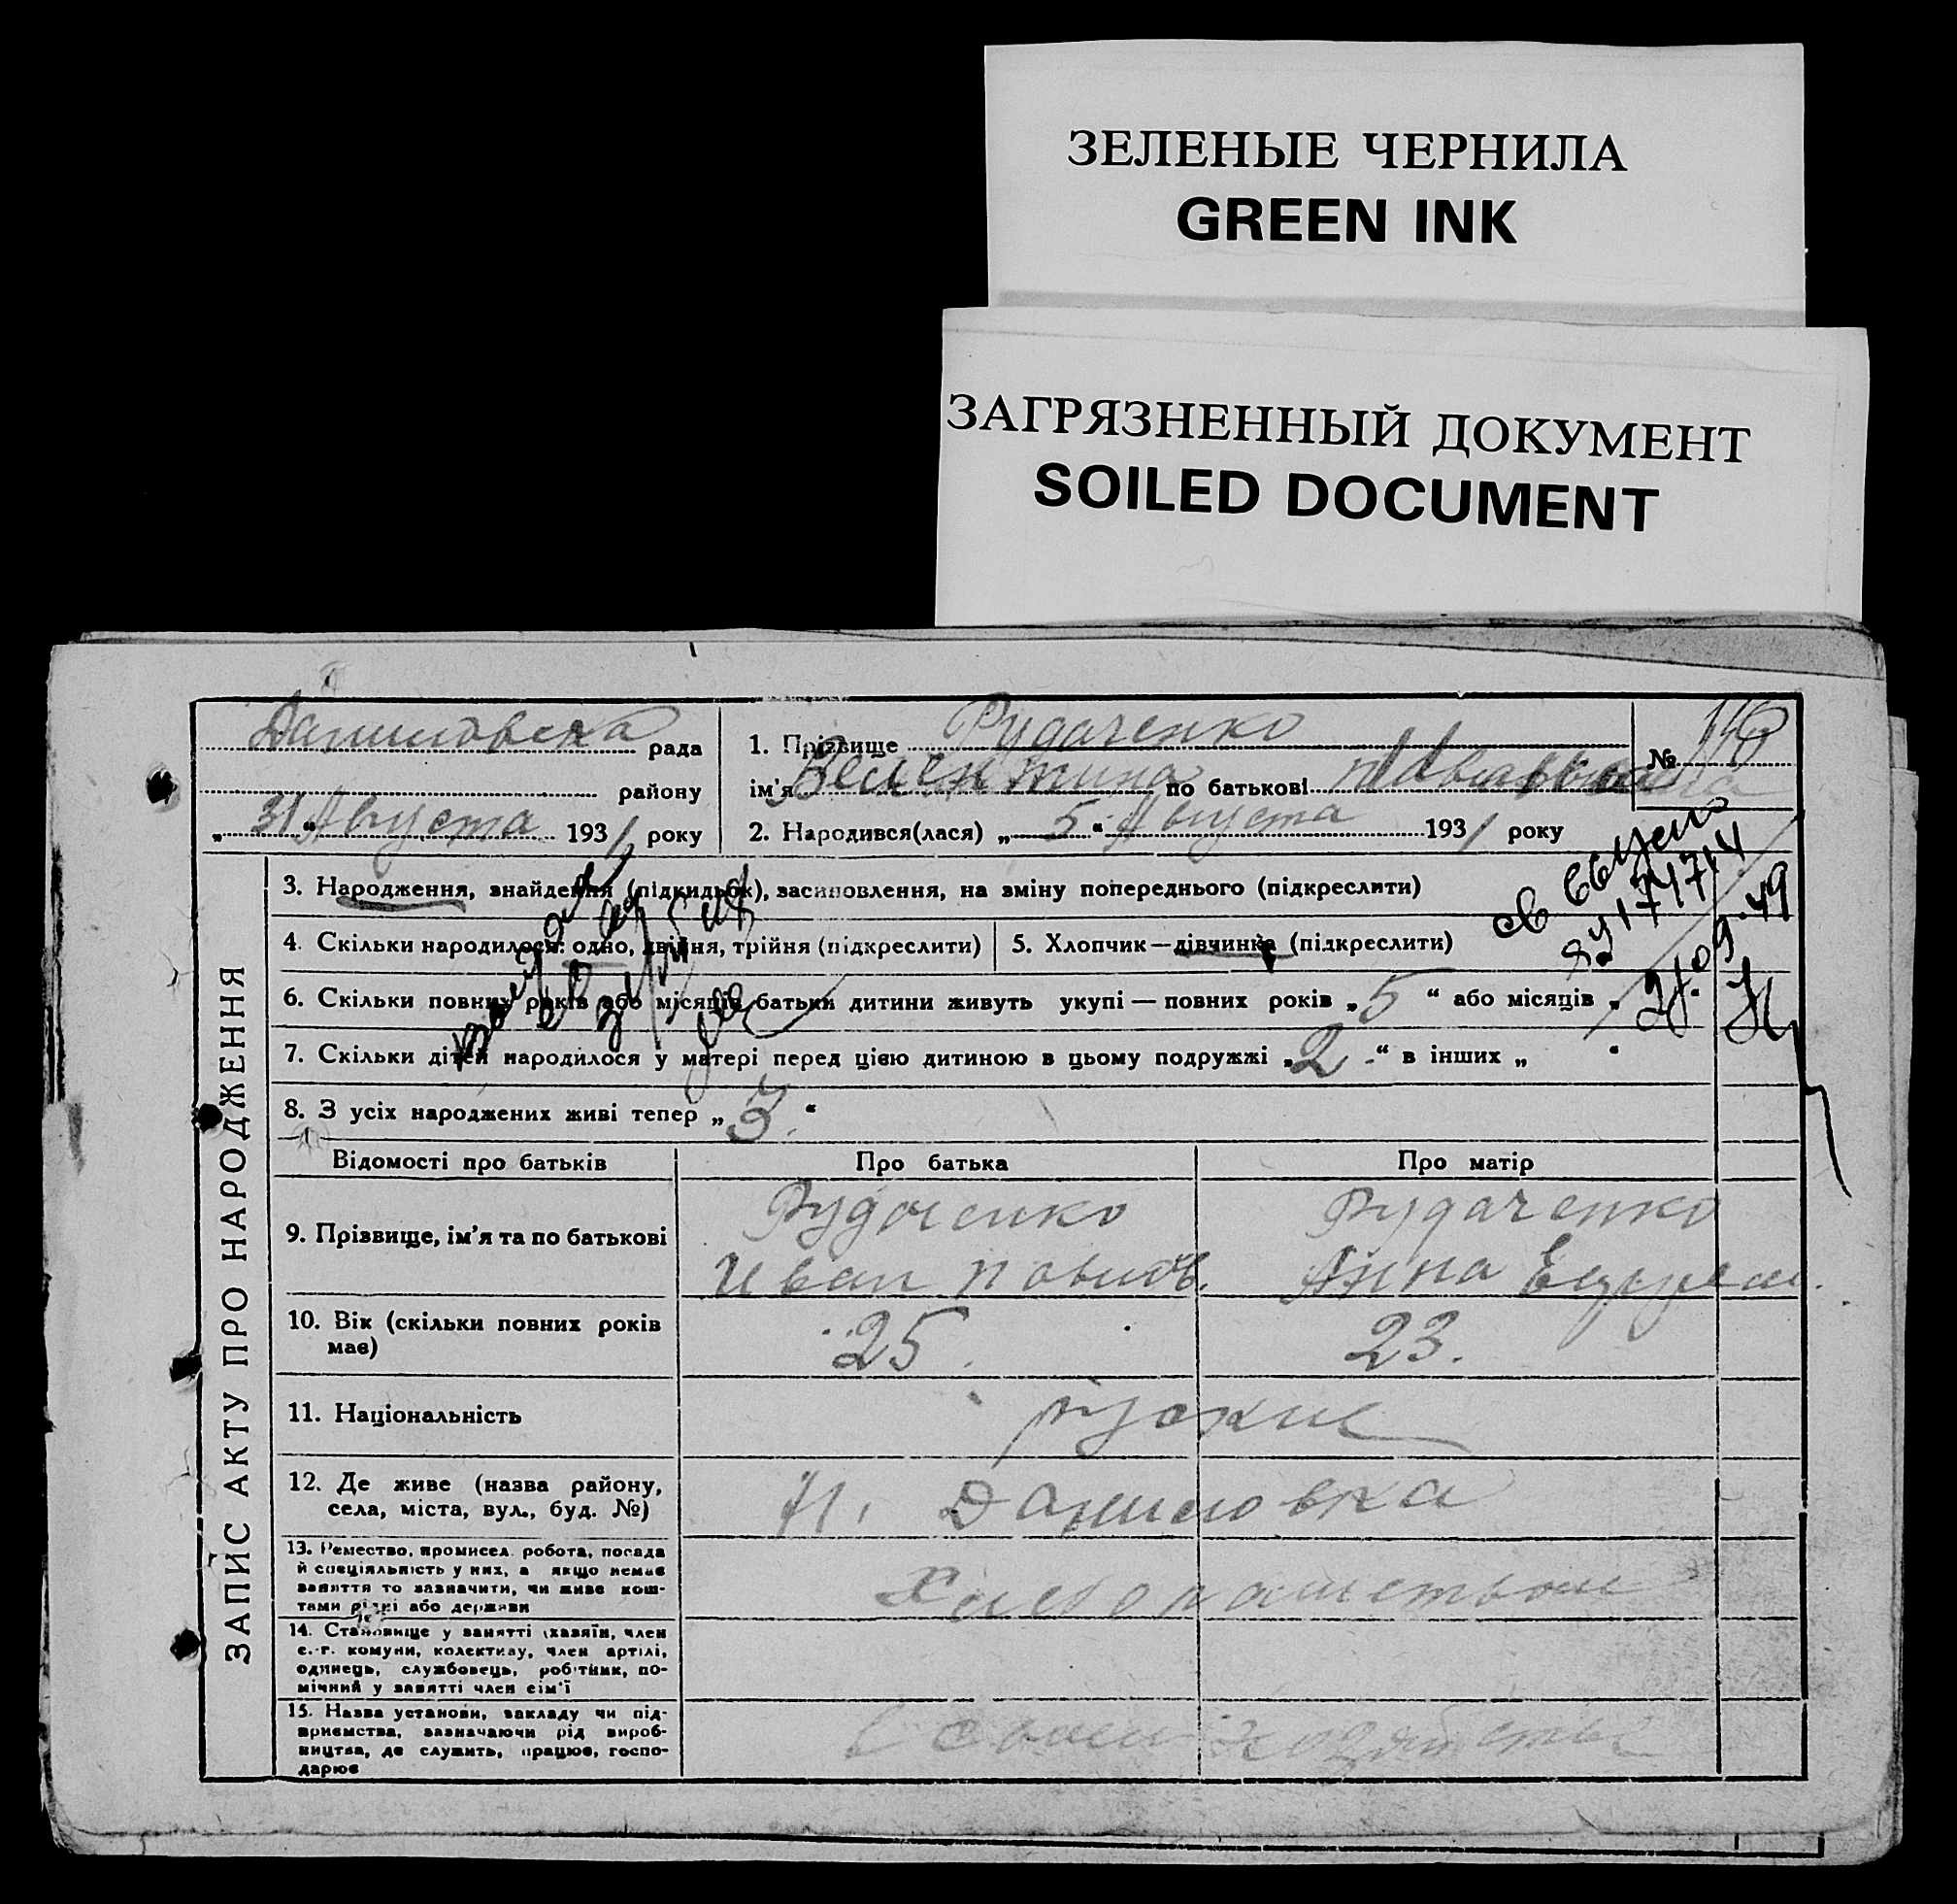 ЗЕЛЕНЫЕ ЧЕРНИЛА
GREEN INK
ЗАГРЯЗНЕННЫЙ ДОКУМЕНТ
SOILED DOCUMENT
Даниловска рада
району
„31“ Августа 1931 року
1. Прізвище Рудаченко
ім'я Велентина по батькові
№ 146
2. Народився(лася) „5“ Августа 1931 року
ЗАПИС АКТУ ПРО НАРОДЖЕННЯ
3. Народження, знайдення (підкидьок), засиновлення, на зміну попереднього (підкреслити)
4. Скільки народилося: одно, двійня, трійня (підкреслити)
5. Хлопчик—дівчинка (підкреслити)
6. Скільки повних років або місяців батьки дитини живуть укупі — повних років „5“ або місяців „
7. Скільки дітей народилося у матері перед цією дитиною в цьому подружжі „2.“ в інших „ “
8. З усіх народжених живі тепер „3.“
Відомості про батьків
Про батька
Про матір
9. Прізвище, ім'я та по батькові
Рудаченко
Иван
Рудаченко
Анна
10. Вік (скільки повних років
має)
25.
23.
11. Національність
руские
12. Де живе (назва району,
села, міста, вул., буд. №)
Н. Даниловка
13. Ремество, промисел, робота, посада
й спеціяльність у них, а якщо немає
заняття то зазначити, чи живе кош-
тами рідні або держави
Хлебопашеством
14. Становище у занятті (хазяїн, член
с.-г. комуни, колективу, член артілі,
одинець, службовець, робітник, по-
мічний у занятті член сім'ї
15. Назва установи, закладу чи під-
приємства, зазначаючи рід вироб-
ництва, де служить, працює, госпо-
дарює
в своем хозяйстве